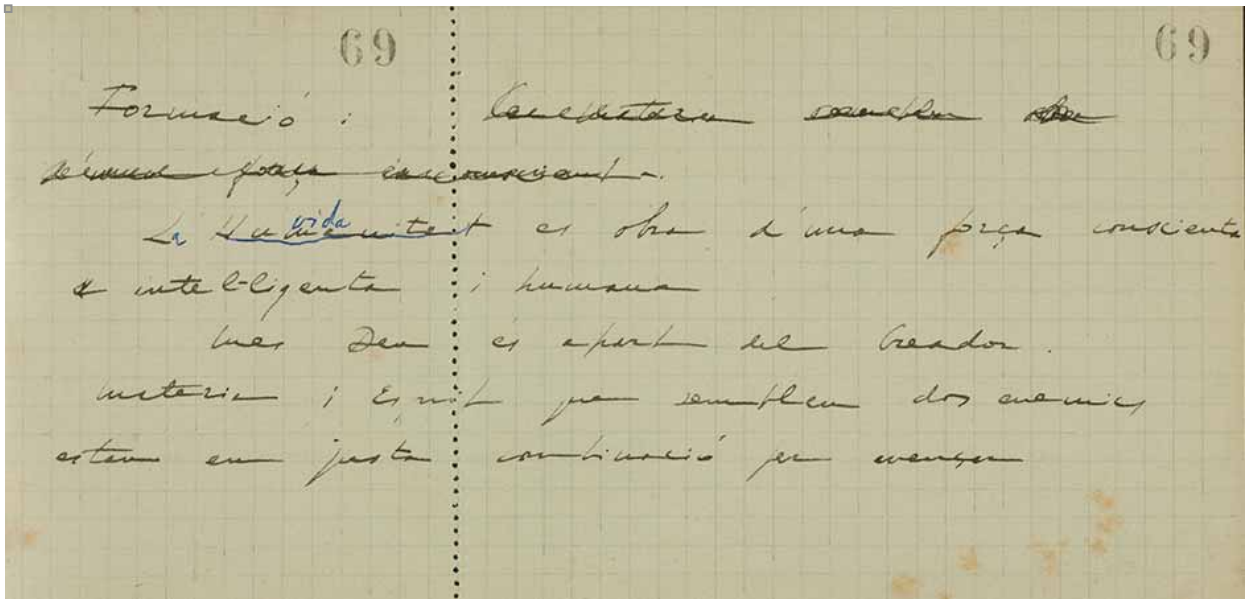 69 69
Formació :
La Humanitat vida es obra d'una força conscienta
intel-ligenta i humana
mes Deu és apart del Creador.
materia i Esprit que semblen dos enemics
estan en justa combinació per